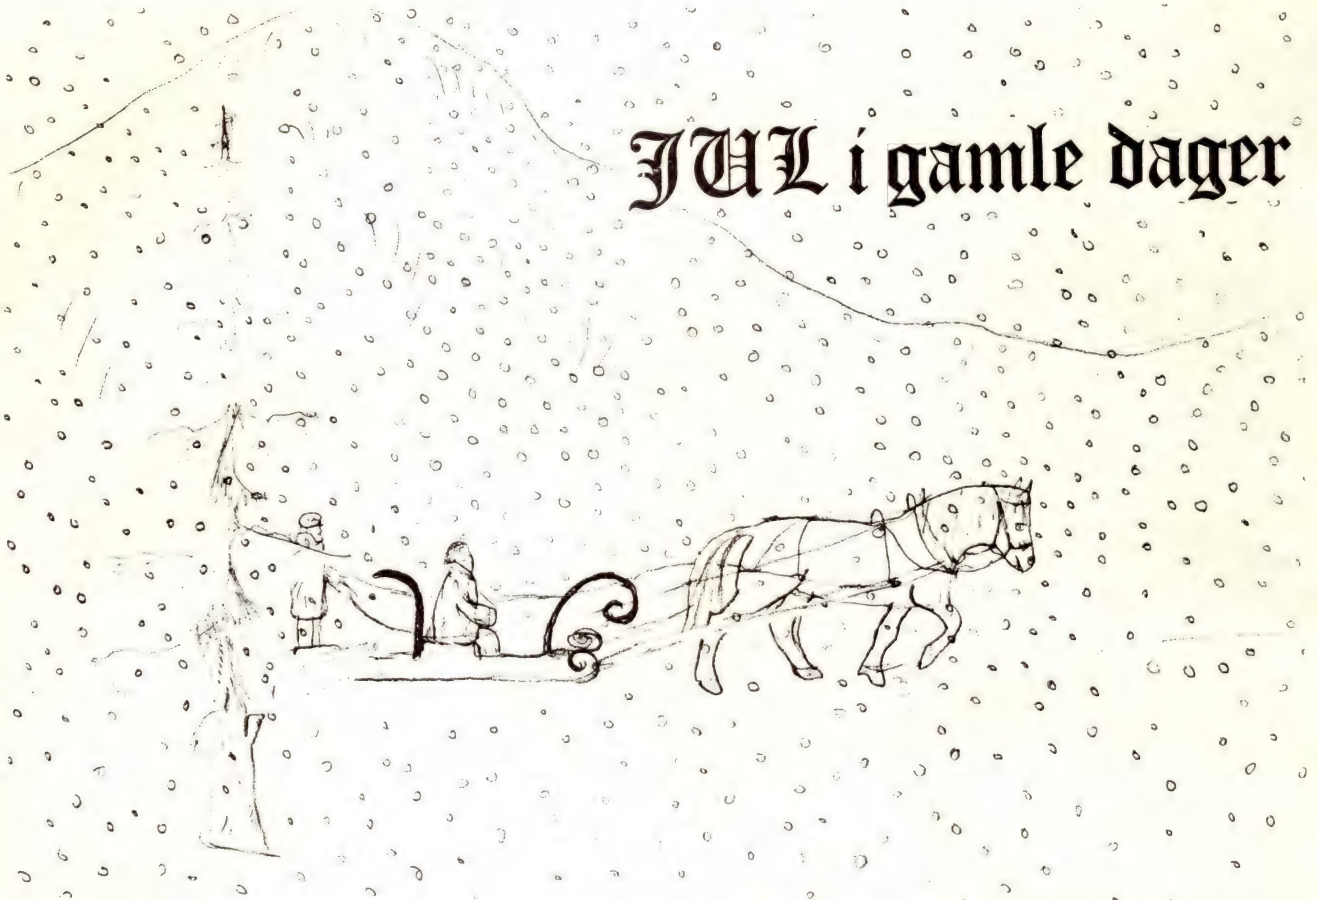 JUL i gamle dager